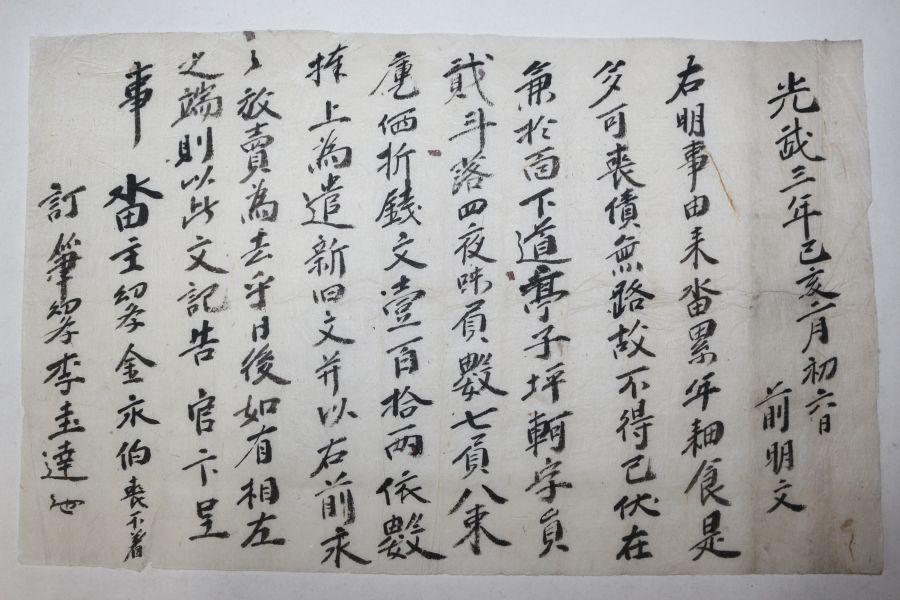 光武三年己亥六月初六日
前明文
右明事由来畓累年耕食是
多可喪債無路故不得已伏在
兼於面下道亭子坪軻字員
貳斗落四夜味員數七負八束
庫価折錢文壹百拾兩依數
捧上為遣新旧文并以右前永
永放賣為去乎日後如有相左
之端則以此文記告官卞呈
事
畓主幼學金永伯喪不着
訂筆幼學李圭達